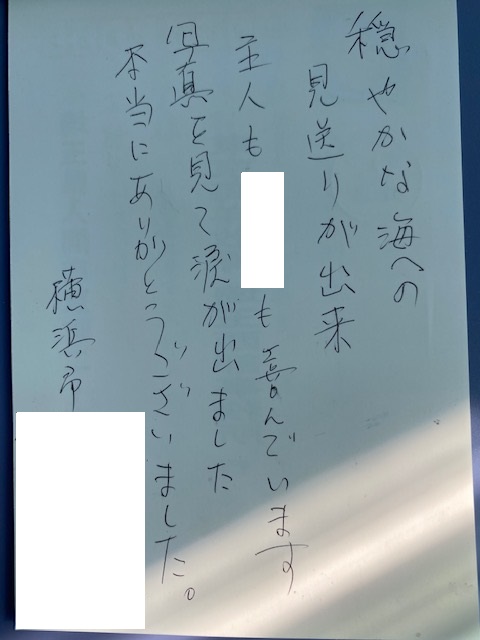 穏やかな海への
見送りが出来
主人も も喜んでいます
写真を見て涙が出ました
本当にありがとうございました。
横浜市